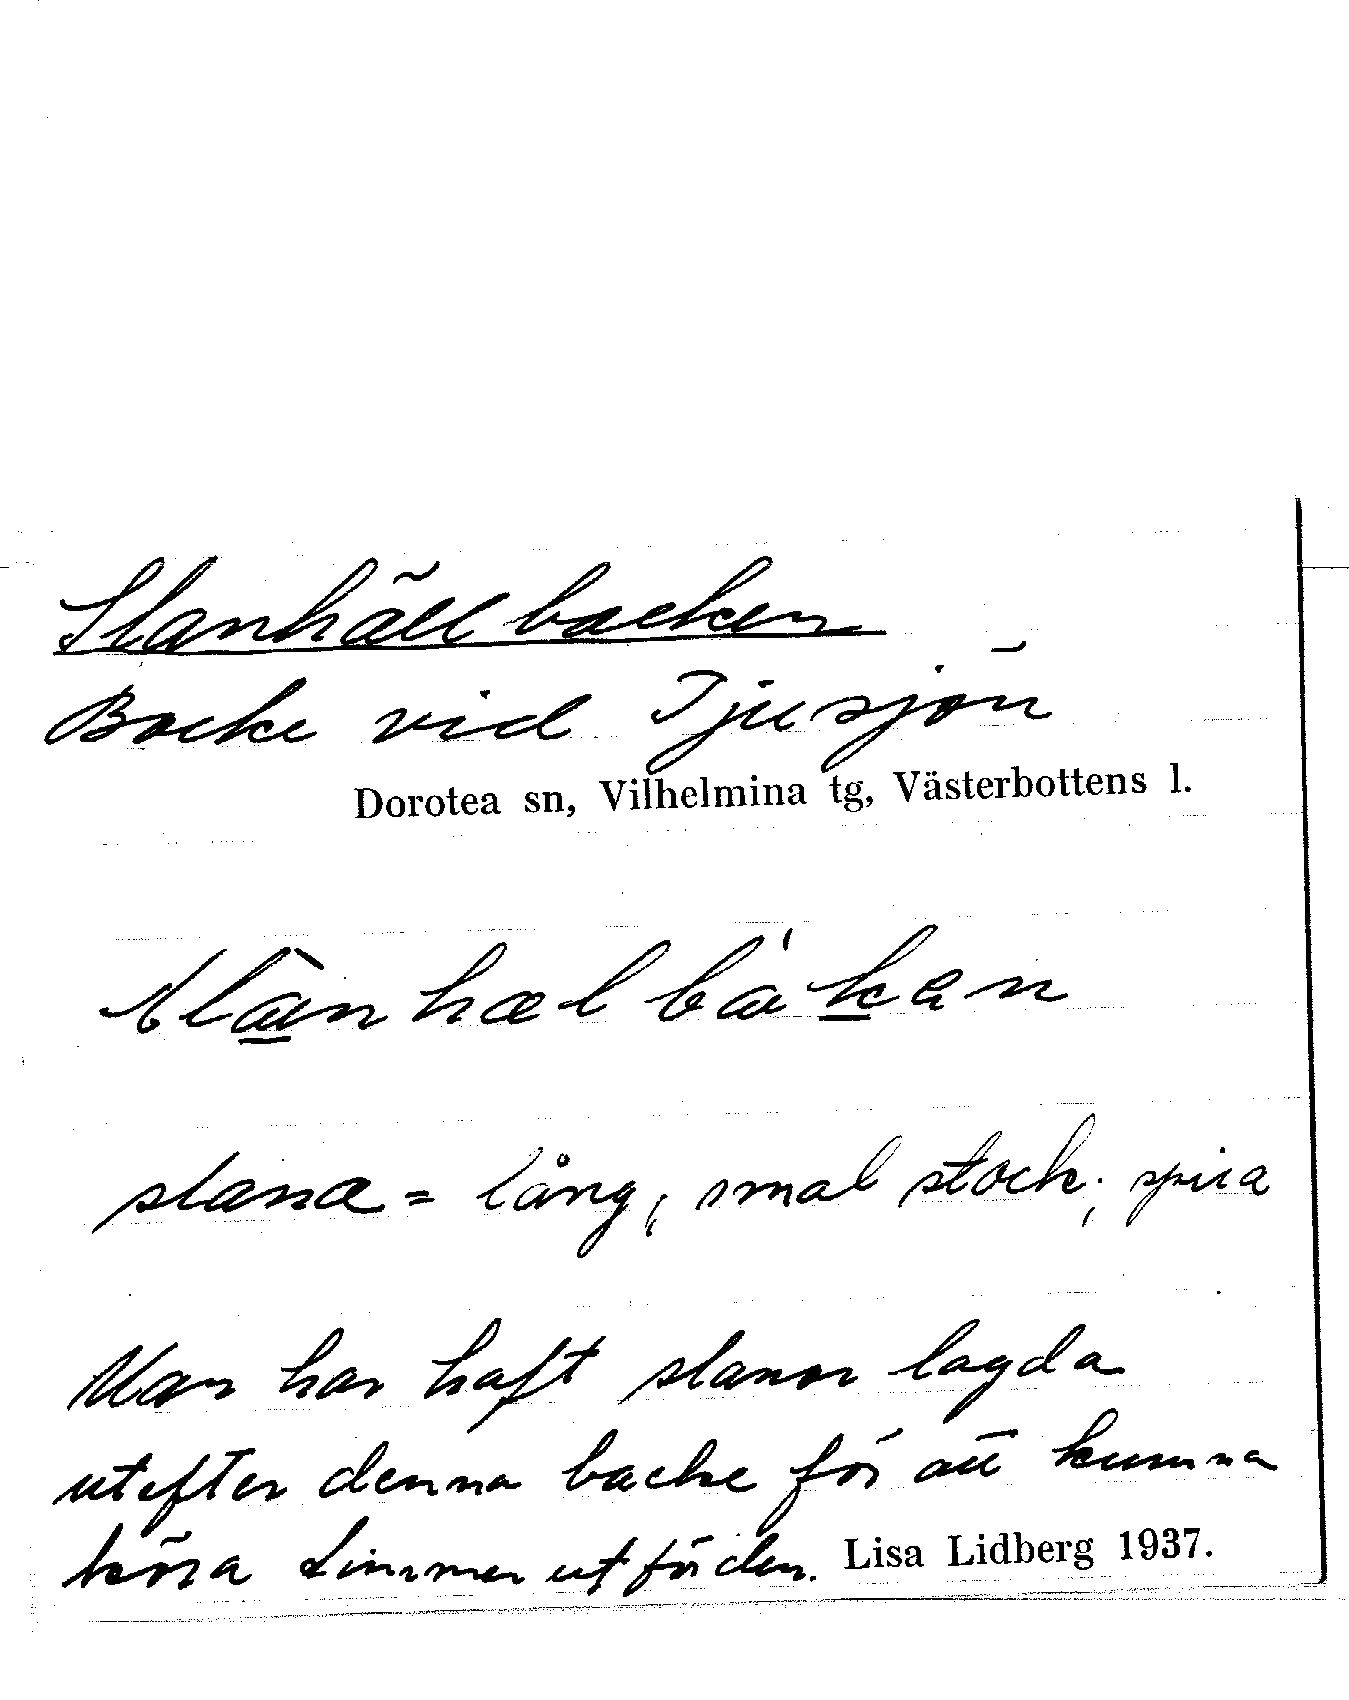 Slanhällbacken
Backe vid Tjusjön
Dorotea sn, Vilhelmina tg, Västerbottens l.
slànhælbа̀kan
slana = lång, smal stock; spira
Man har haft slanor lagda
utefter denna backe för att kunna
köra timmer utför den. Lisa Lidberg 1937.